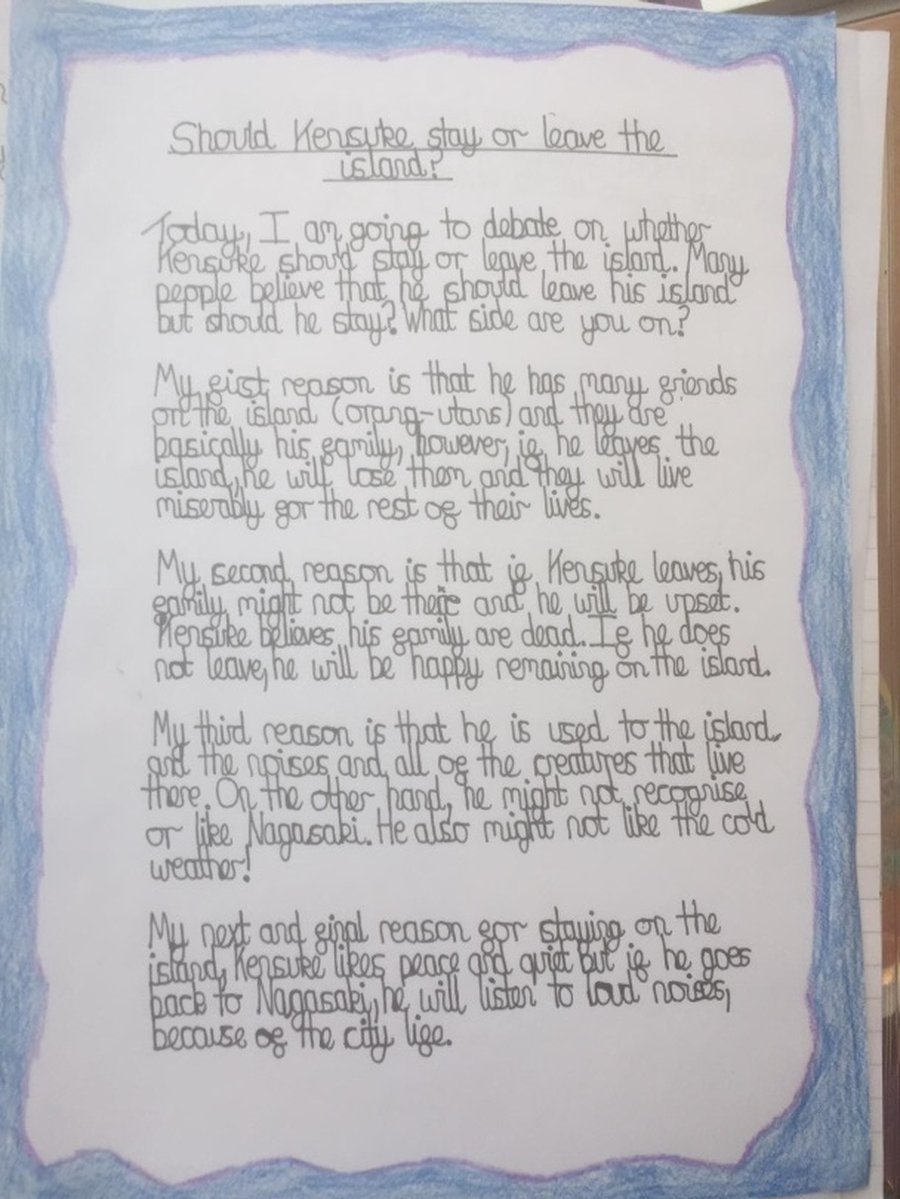 Should Kensuke stay or leave the
island?
Today, I am going to debate on whether
Kensuke should stay or leave the island. Many
people believe that he should leave his island
but should he stay? What side are you on?
My first reason is that he has many friends
on the island (orang-utans) and they are
basically his family, however, if he leaves the
island, he will lose them and they will live
miserably for the rest of their lives.
My second reason is that if Kensuke leaves, his
family might not be there and he will be upset.
Kensuke believes his family are dead. If he does
not leave, he will be happy remaining on the island.
My third reason is that he is used to the island
and the noises and all of the creatures that live
there. On the other hand, he might not recognise
or like Nagasaki. He also might not like the cold
weather!
My next and final reason for staying on the
island, Kensuke likes peace and quiet but if he goes
back to Nagasaki, he will listen to loud noises,
because of the city life.